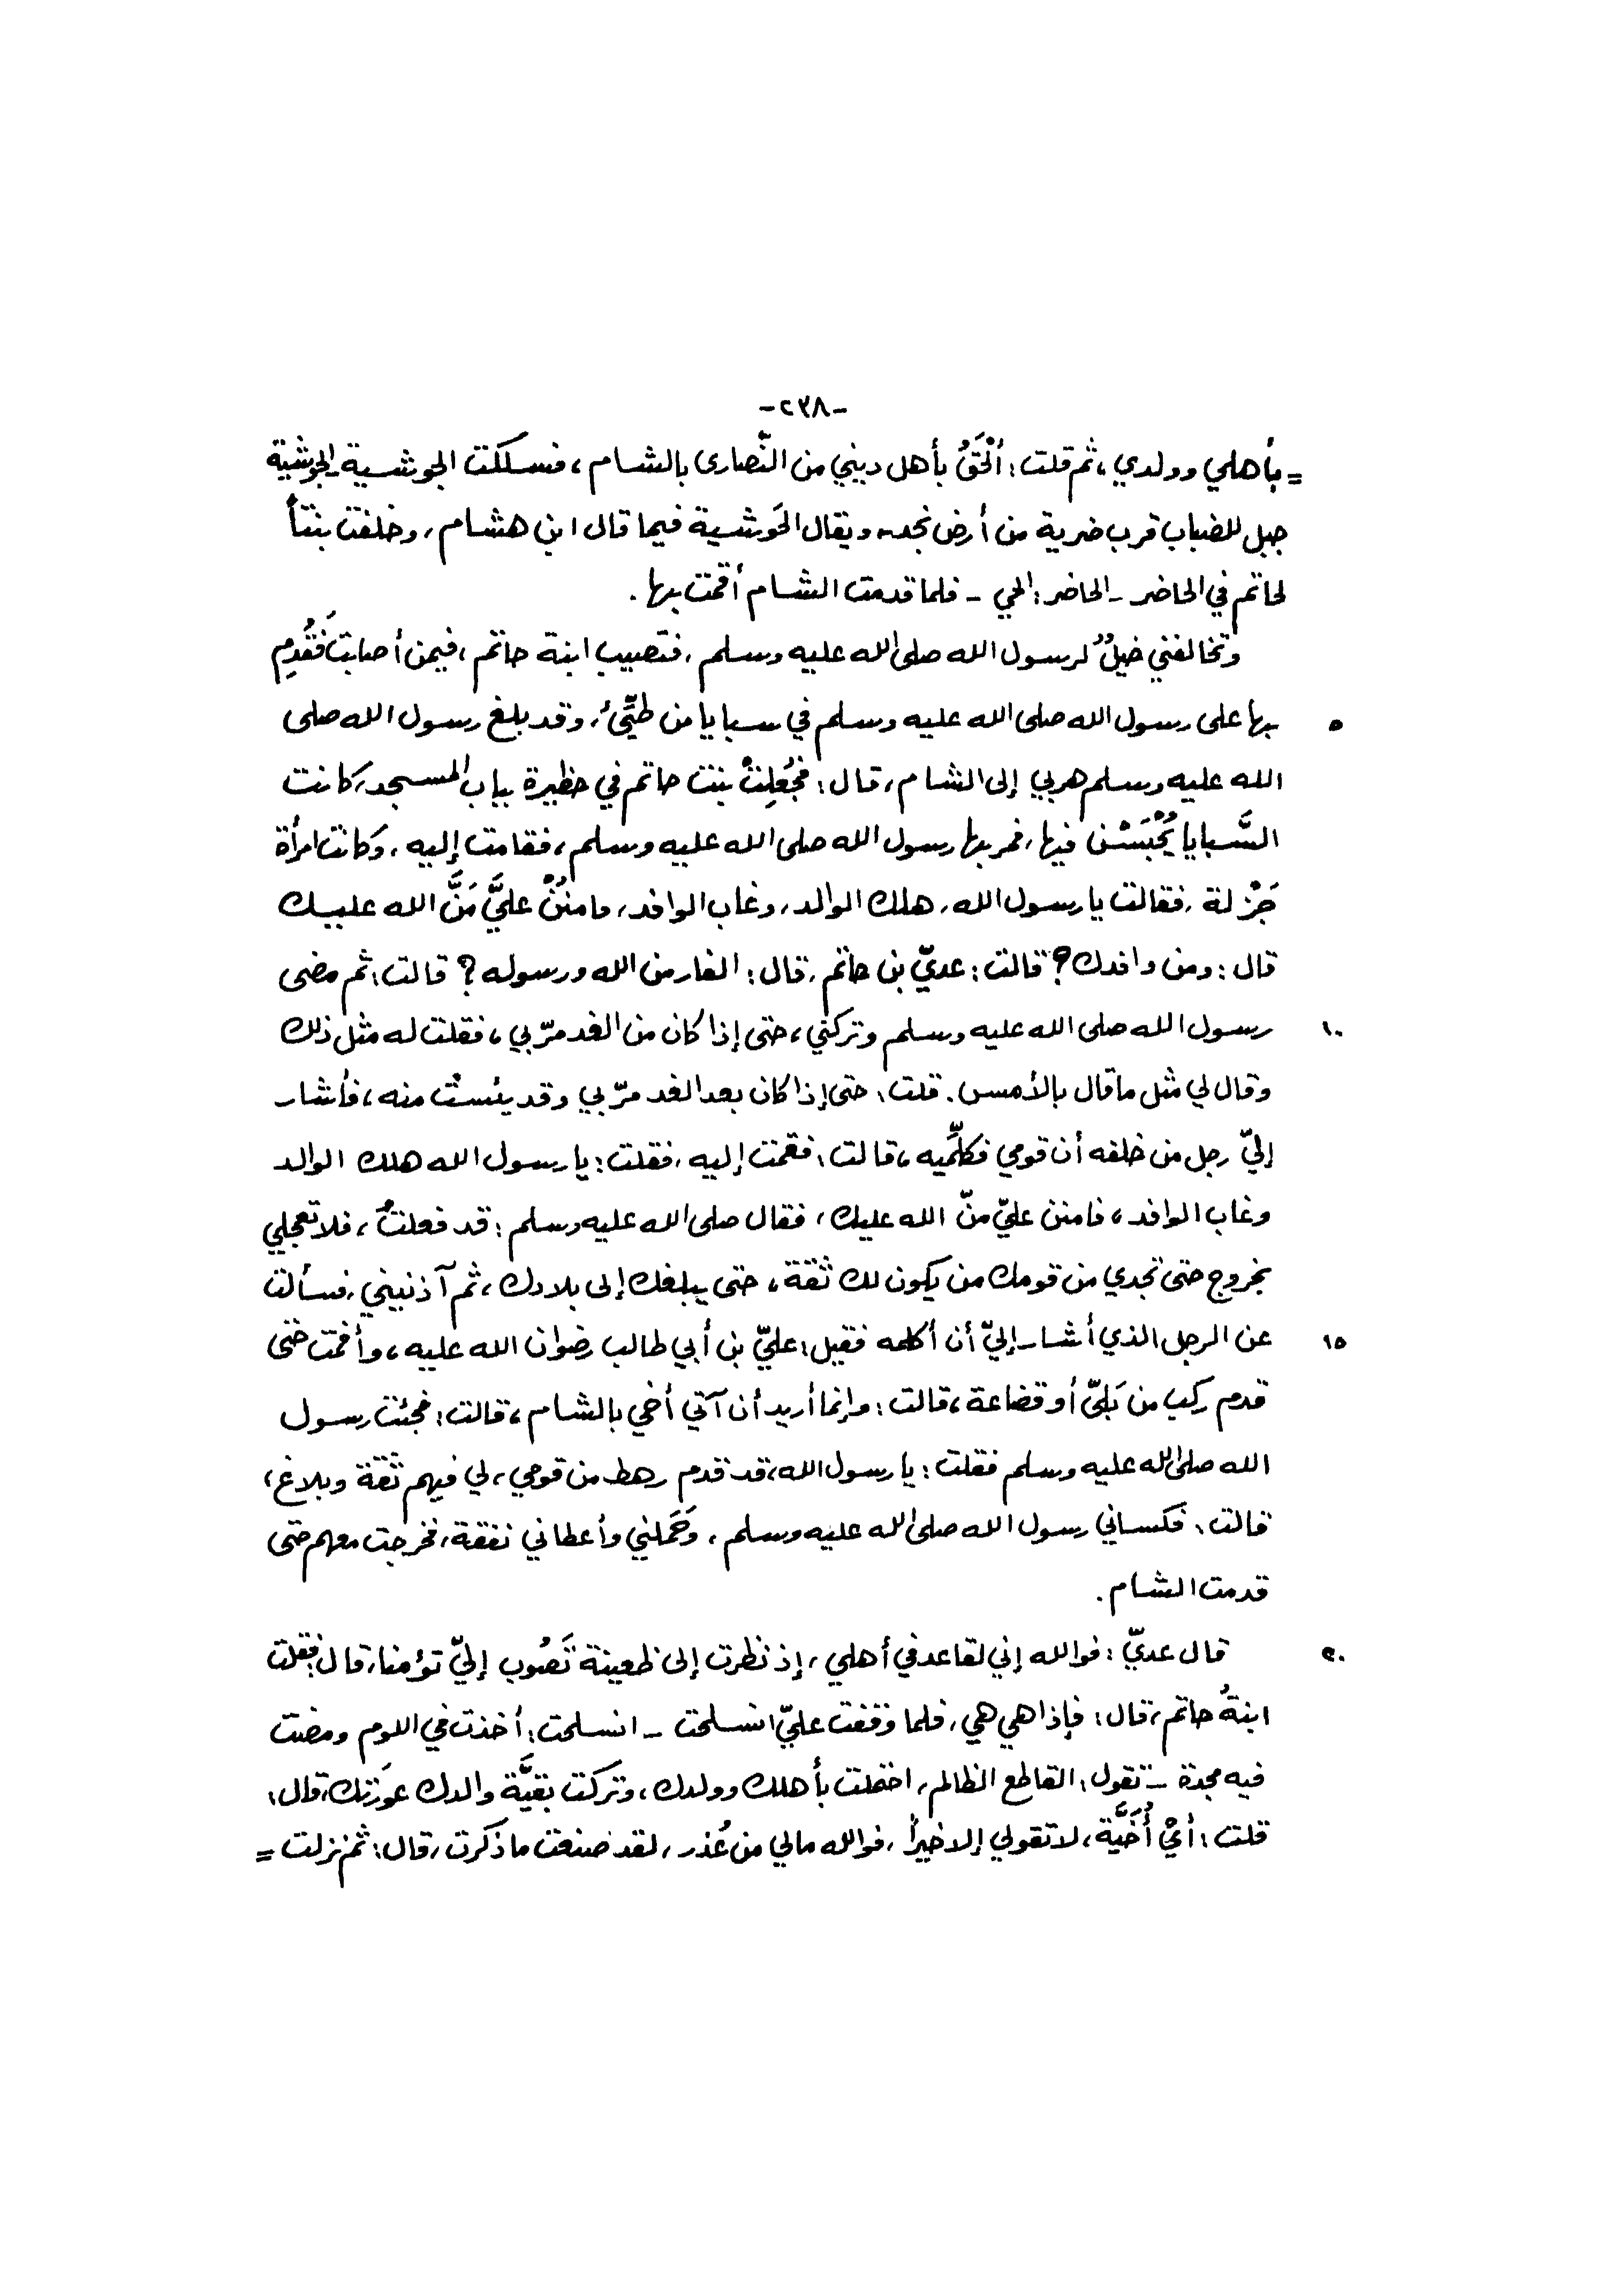 -٢٣٨-
= بأهلي وولدي، ثم قلت: أَلْحَقُ بأهل ديني من النّصارى بالشام، فسلكت الجوشية -الجوشية
جبل للضباب قرب ضرية من أرض نجد- ويقال الحَوشية فيما قال ابن هشام، وخلفت بنتاً
لحاتم في الحاضر -الحاضر: الحي - فلما قدمت الشام أقمت بها.
وتخالفني خيلٌ لرسول الله صلى الله عليه وسلم، فتصيب ابنة حاتم، فيمن أصابت، فَقُدِم
٥ بها على رسول الله صلى الله عليه وسلم في سبايا من طيِّئ، وقد بلغ رسول الله صلى
الله عليه وسلم هربي إلى الشام، قال: فجُعِلتْ بنت حاتم في حظيرة بباب المسجد، كانت
السَّبايا يُحْبَسْن فيها، فمر بها رسول الله صلى الله عليه وسلم، فقامت إليه، وكانت امرأة
جَزْلة، فقالت يا رسول الله، هلك الوالد، وغاب الوافد، فامنُنْ عليَّ مَنَّ الله عليك
قال: ومن وافدك؟ قالت: عديّ بن حاتم، قال: الفار من الله ورسوله؟ قالت: ثم مضى
١٠ رسول الله صلى الله عليه وسلم وتركني، حتى إذا كان من الغد مرّ بي، فقلت له مثل ذلك
وقال لي مثل ما قال بالأمس. قلت: حتى إذا كان بعد الغد مرّ بي وقد يئستْ منه، فأشار
إليّ رجل من خلفه أن قومي فكلِّميه، قالت: فقمت إليه، فقلت: يا رسول الله هلك الوالد
وغاب الوافد، فامنن عليّ منّ الله عليك، فقال صلى الله عليه وسلم: قد فعلتُ، فلا تعجلي
بخروج حتى تجدي من قومك من يكون لك ثقة، حتى يبلغك إلى بلادك، ثم آذنيني، فسألت
١٥ عن الرجل الذي أشار إليّ أن أكلمه فقيل: عليّ بن أبي طالب رضوان الله عليه، وأقمت حتى
قدم ركب من بَلِيّ أو قضاعة، قالت: وإنما أريد أن آتي أخي بالشام، قالت: فجئت رسول
الله صلى الله عليه وسلم فقلت: يا رسول الله، قد قدم رهط من قومي، لي فيهم ثقة وبلاغ،
قالت: فكساني رسول الله صلى الله عليه وسلم، وحَمَلني وأعطاني نفقة، فخرجت معهم حتى
قدمت الشام.
٢٠ قال عديّ: فوالله إني لقاعد في أهلي، إذ نظرت إلى ظعينة تَصُوب إليّ تؤمنا، قال: فقلت
ابنةُ حاتم، قال: فإذا هي هي، فلما وقفت عليّ انسلحت - انسلحت: أخذت في اللوم ومضت
فيه مجدة - تقول: القاطع الظالم، احتملت بأهلك وولدك، وتركت بقيَّة والدك عَوْرتك، قال:
قلت: أيْ أُخَيَّة، لا تقولي إلا خيراً، فوالله مالي من عُذر، لقد صنعت ما ذكرت، قال: ثم نزلت =